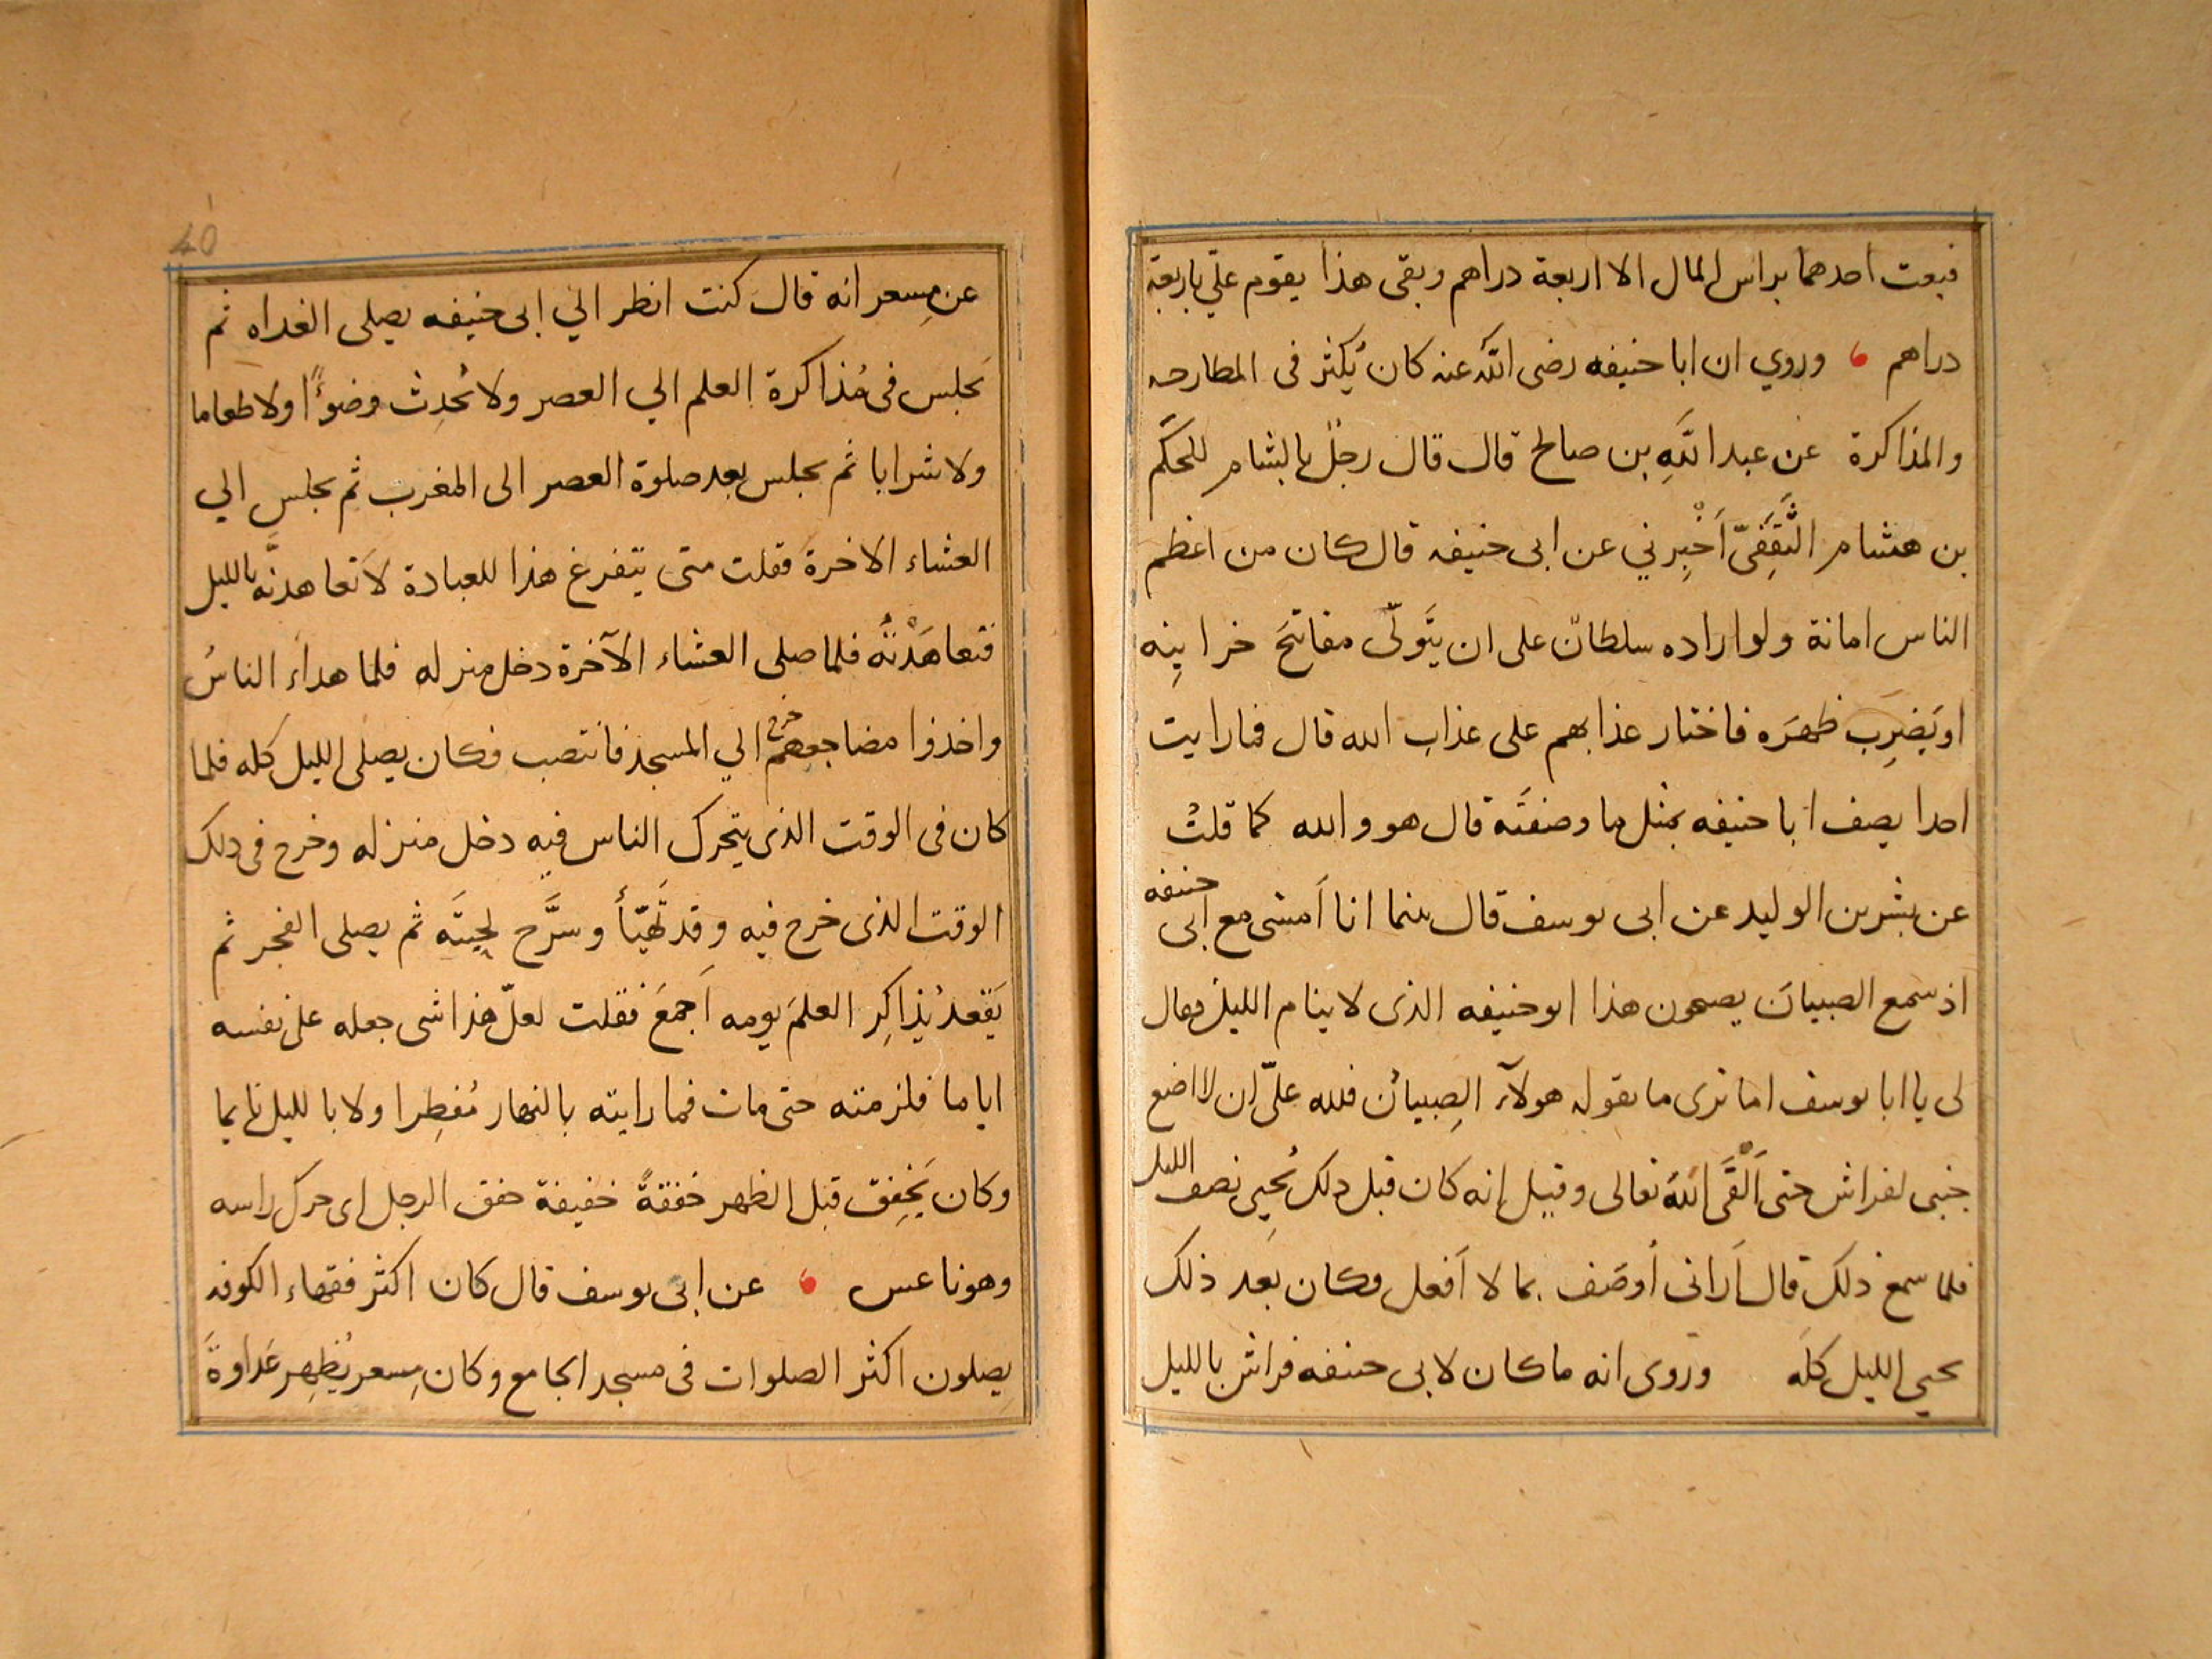 فبعت احدهما براس المال الا اربعة دراهم وبقى هذا يقوم عليّ باربعة
دراهم وروي ان ابا حنيفه رضى اللّه عنه كان يُكثر فى المطارحه
والمذاكرة عن عبد اللّهِ بن صالح قال قال رجلٌ بالشام للحكَم
بن هشام الثَّقَفِىّ اَخْبِرني عن ابى حنيفه قال كان من اعظم
الناس امانة ولو اراده سلطانٌ على ان يتَولّى مفاتيحَ خزاينِه
او يَضرِب ظهرَه فاختار عذابهم على عذاب الله قال فما رايت
احدا يصف ابا حنيفه بمثل ما وصفتَه قال هو والله كما قلتُ
عن بشر بن الوليد عن ابى يوسف قال بينما انا اَمشى مع ابى حنيفه
اذ سمع الصبيانَ يصيحون هذا ابو حنيفه الذى لا ينام الليلَ فقال
لى يا ابا يوسف اما ترى ما يقوله هولآء الصِبيانُ فلله علىّ ان لا اضع
جنبى لفراش حتى اَلْقَى اللّهَ تعالى وقيل إنه كان قبل ذلك يُحيِى نصف الليل
فلما سمع ذلك قال اَرانى اُوصَف بما لا اَفعل فكان بَعد ذلك
يحيي الليل كلَه وروى انه ما كان لابى حنيفه فراش بالليل
40
عن مِسعر انه قال كنت انظر الي ابى حنيفه يصلى الغداه ثم
يَجلس فى مُذاكرة العلم الي العصر ولا يُحدِث وضوءًا ولا طعاما
ولا شرابا ثم يجلس بعد صلوة العصر الى المغرب ثم يجلس الي
العشاء الاخرة فقلت متى يتفرغ هذا للعبادة لاَتعاهدنَّه بالليل
فتعاهَدْتُه فلما صلى العشاء الآخرة دخل منزله فلما هداَء الناسُ
واخذوا مضاجعهم خرج الي المسجد فانتصب فكان يصلى الليل كله فلما
كان فى الوقت الذى يتحرك الناس فيه دخل منزله وخرج فى ذلك
الوقت الذى خرج فيه وقد تَهيّأ وسرَّح لحيتَه ثم يصلى الفجر ثم
يَقعد يُذاكِر العلمَ يومه اَجمعَ فقلت لعلّ هذا شى جعله على نفسه
اياما فلزمته حتى مات فما رايته بالنهار مُفطِرا ولا بالليل نايما
وكان يَخفِق قبل الظهر خفقةً خفيفة خفق الرجل اى حرك راسه
وهو ناعس عن ابى يوسف قال كان اكثر فقهاء الكوفه
يصلون اكثر الصلوات فى مسجد الجامع وكان مِسعر يُظهِر عَداوةَ